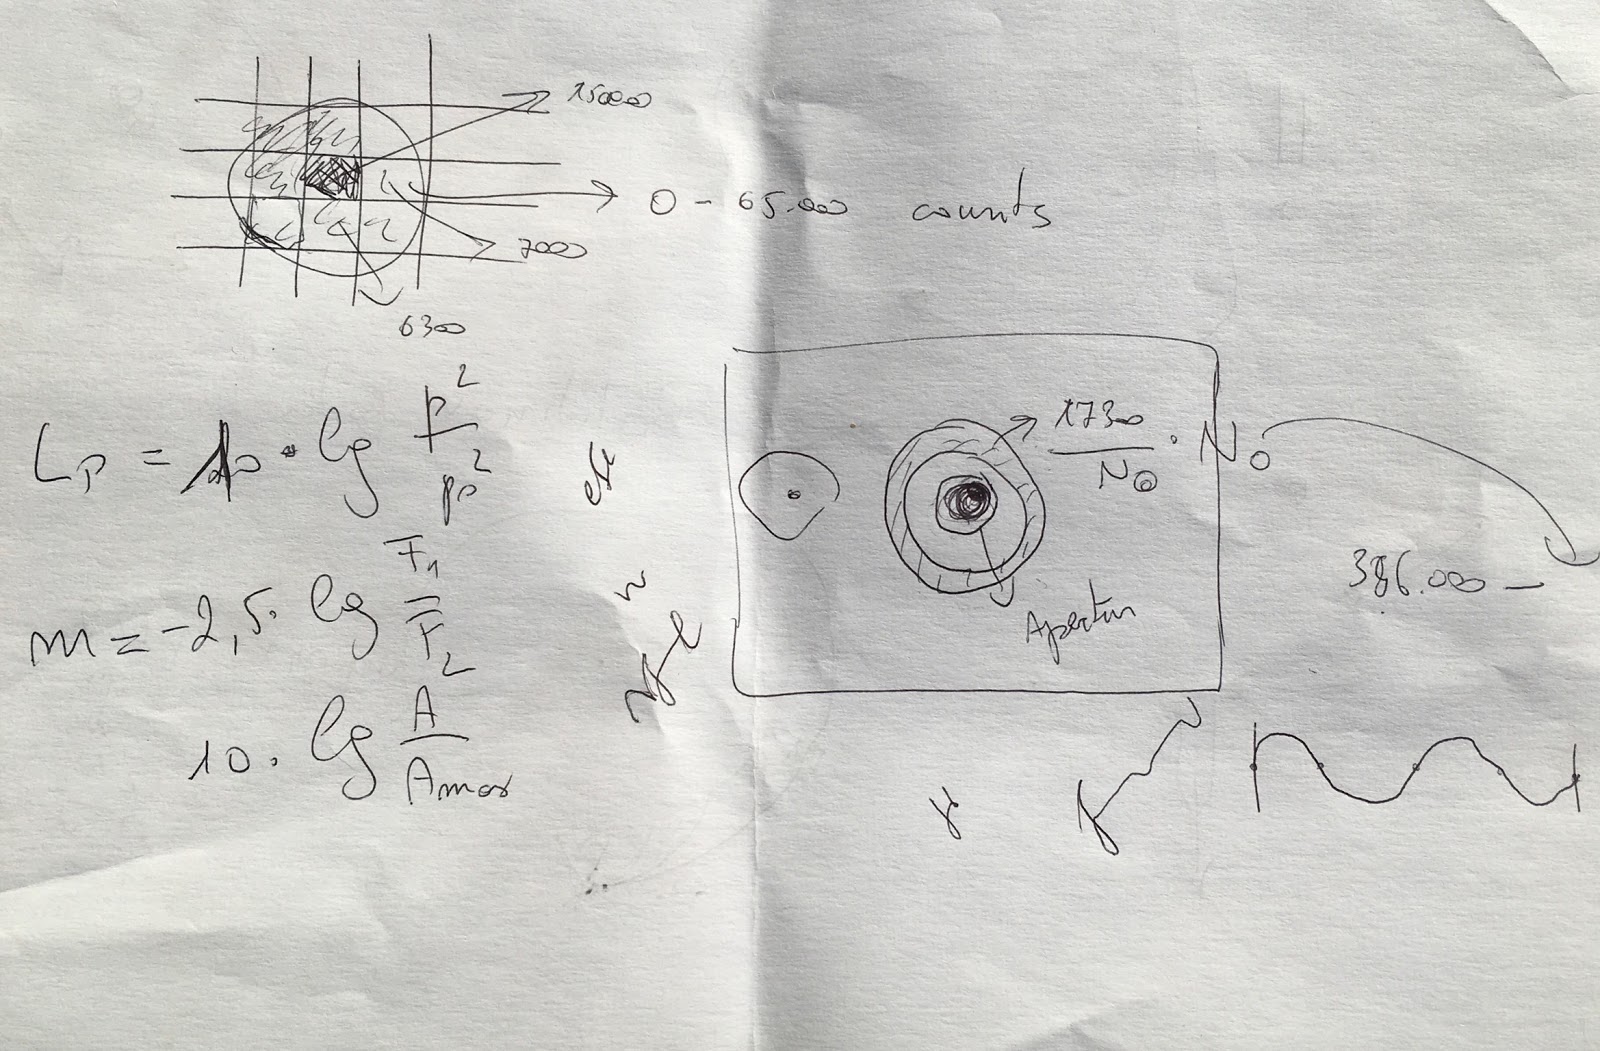 15000
0 - 65.000 counts
7000
6300
Lp = 10 · lg p²/p0²
m = -2,5 · lg F1/F2
10 · lg A/Amax
17300/N⊙ · N0
Apertur
386.000 –